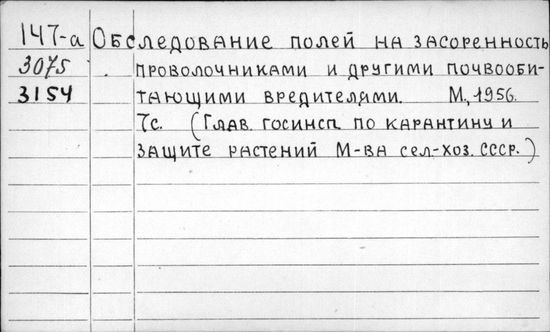 147-а Обследование полей на засоренность
3075 проволочниками и другими почвооби-
3154 тающими вредителями. М., 1956.
7с. (Глав. госинсп. по карантину и
защите растений М-ва сел-хоз. СССР.)